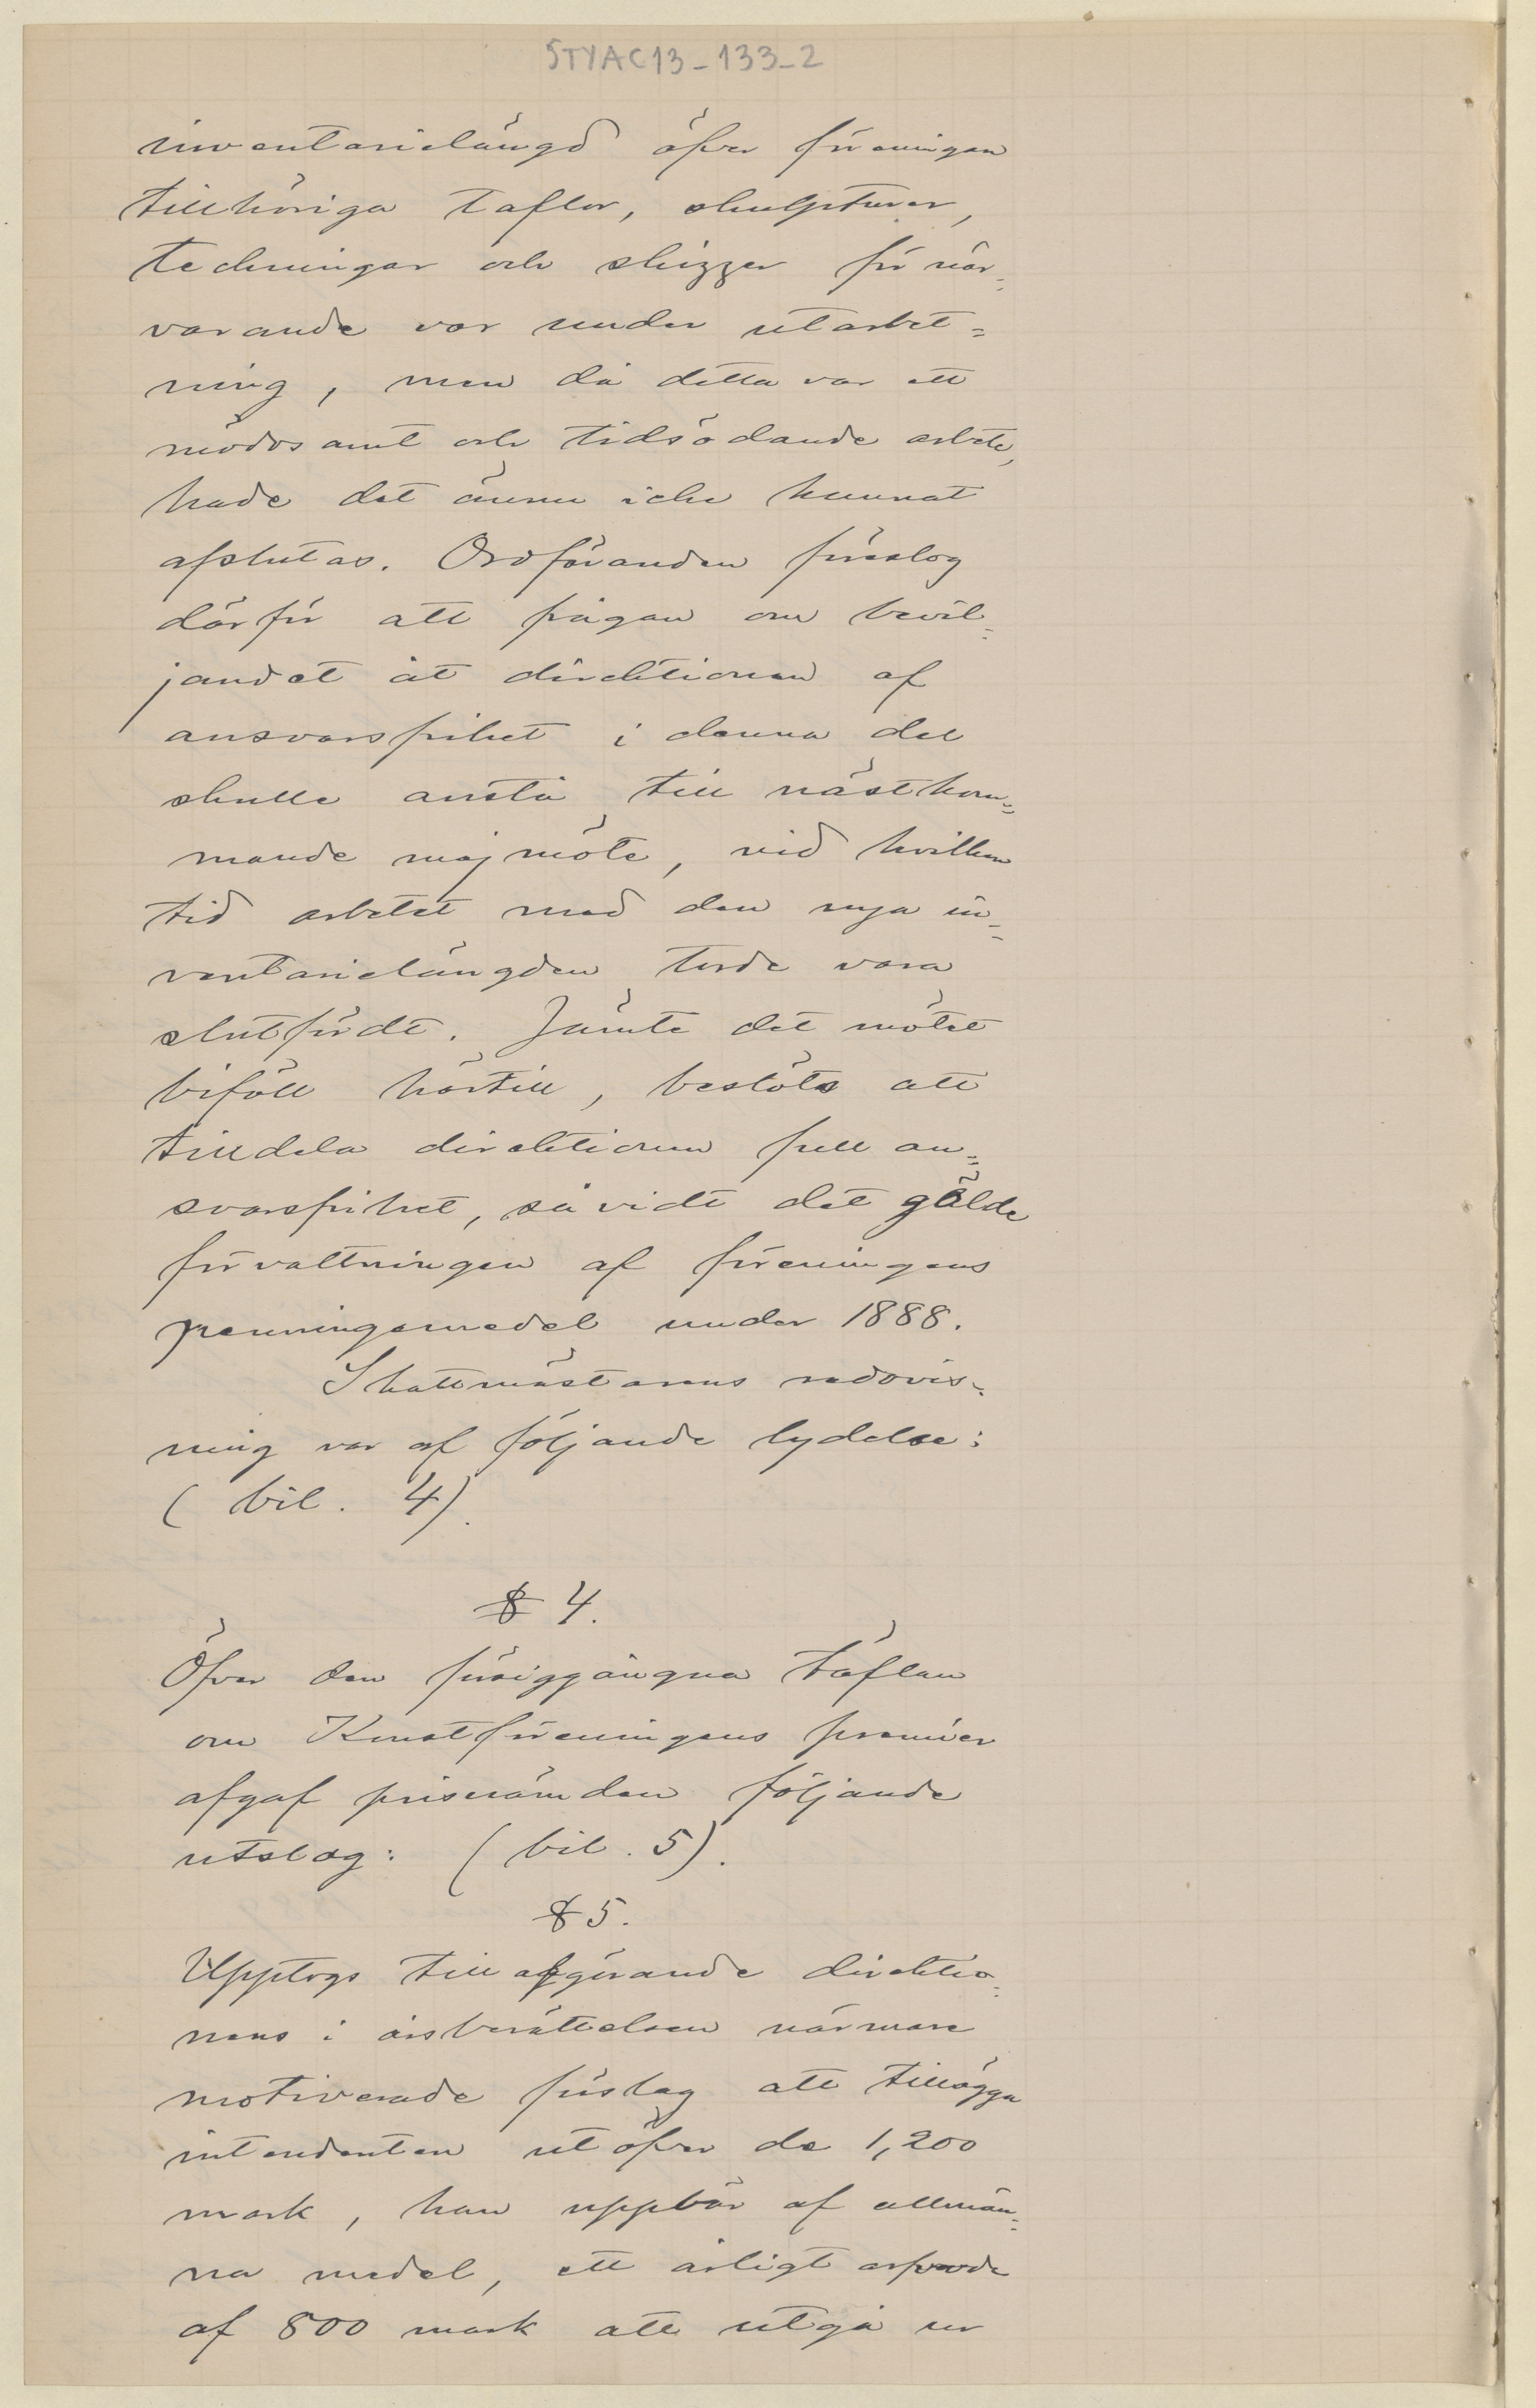 STYAC13-133-2
inventarielängd öfver föreningen
tillhöriga taflor, skulpturer,
teckningar och skizzer för när-
varande var under utarbet-
ning, men då detta var ett
mödosamt och tidsödande arbete,
hade det ännu icke hunnat
afslutas. Ordföranden föreslog
därför att frågan om bevil-
jandet åt direktionen af
ansvarsfrihet i denna del
skulle anstå till nästkom-
mande majmöte, vid hvilken
tid arbetet med den nya in-
ventarielängden torde vara
slutfördt. Jämte det mötet
biföll härtill, beslöts att
tilldela direktionen full an-
svarsfrihet, såvidt det gälde
förvaltningen af föreningens
penningemedel under 1888.
Skattmästarens redovis-
ning var af följande lydelse:
(bil. 4).
§ 4.
Öfver den föregångna täflan
om Konstföreningens premier
afgaf prisnämnden följande
utslag: (bil. 5).
§ 5.
Upptogs till afgörande direktio-
nens i årsberättelsen närmare
motiverade förslag att tillägga
intendenten utöfver de 1,200
mark, han uppbär af allmän-
na medel, ett årligt arfvode
af 800 mark att utgå ur